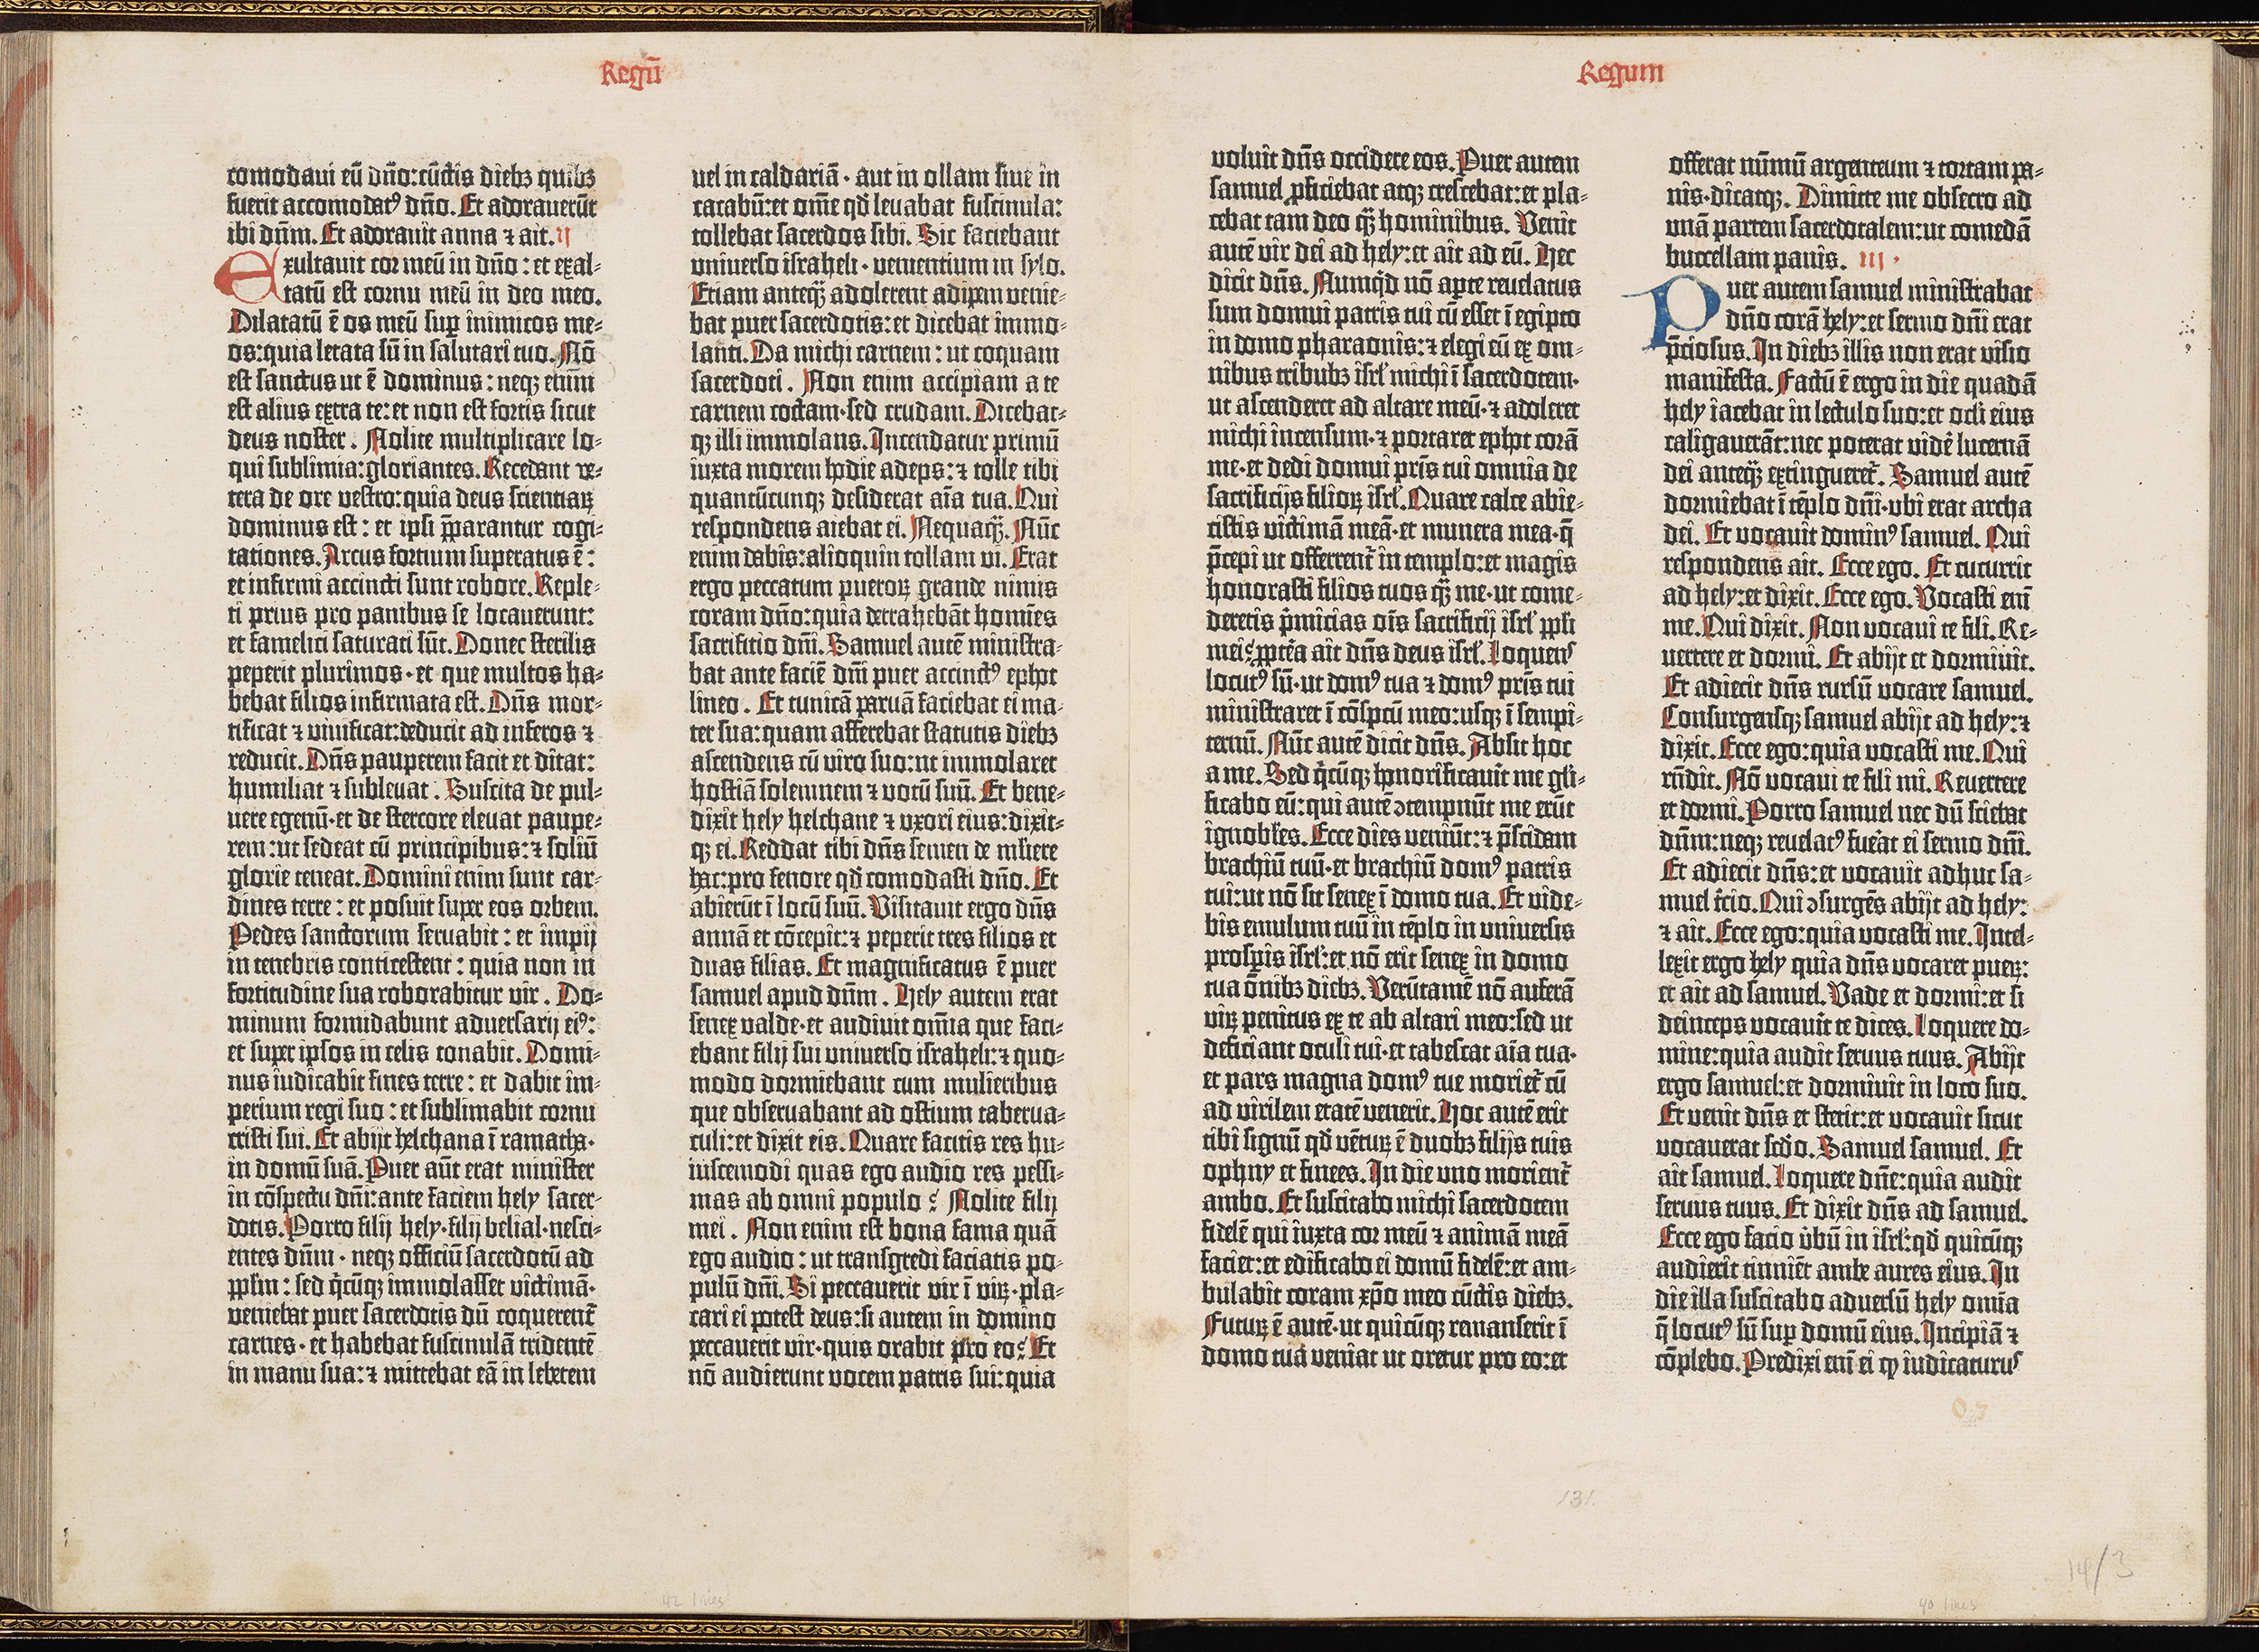 Regū
comodaui eū dño:cūctis diebꝫ quibꝫ
fuerit accomodatꝰ dño. Et adorauerūt
ibi dñm. Et adorauit anna ⁊ ait. ıı
Exultauit cor meū in dño : et exal⸗
tatū est cornu meū in deo meo.
Dilatatū ē os meū suꝑ inimicos me⸗
os:quia letata sū in salutari tuo. Nō
est sanctus ut ē dominus : neqꝫ enim
est alius extra te:et non est fortis sicut
deus noster . Nolite multiplicare lo⸗
qui sublimia:gloriantes. Recedant ve⸗
tera de ore vestro:quia deus scientiaꝝ
dominus est : et ipsi p̄parantur cogi⸗
tationes. Arcus fortium superatus ē :
et infirmi accincti sunt robore. Reple⸗
ti prius pro panibus se locauerunt:
et famelici saturati sūt. Donec sterilis
peperit plurimos · et que multos ha⸗
bebat filios infirmata est. Dñs mor⸗
tificat ⁊ viuificat:deducit ad inferos ⁊
reducit. Dñs pauperem facit et ditat:
humiliat ⁊ subleuat . Suscitat de pul⸗
uere egenū·et de stercore eleuat paupe⸗
rem : ut sedeat cū principibus:⁊ soliū
glorie teneat. Domini enim sunt car⸗
dines terre : et posuit super eos orbem.
Pedes sanctorum seruabit : et impij
in tenebris conticescent : quia non in
fortitudine sua roborabitur vir . Do⸗
minum formidabunt aduersarij eiꝰ:
et super ipsos in celis tonabit. Domi⸗
nus iudicabit fines terre : et dabit im⸗
perium regi suo : et sublimabit cornu
cristi sui. Et abijt helchana ī ramatha·
in domū suā. Puer aūt erat minister
in cōspectu dñi:ante faciem hely sacer⸗
dotis. Porro filij hely·filij belial·nesci⸗
entes dñm · neqꝫ officiū sacerdotū ad
pplm : sed q̇cūqꝫ immolasset victimā·
veniebat puer sacerdotis dū coquerent᷑
carnes · et habebat fuscinulā tridentē
in manu sua:⁊ mittebat eā in lebetem
uel in caldariā · aut in ollam siue in
cacabū:et om̄e qd̄ leuabat fuscinula:
tollebat sacerdos sibi. Sic faciebant
vniuerso israheli · venientium in sylo.
Etiam anteqꝫ̄ adolerent adipem venie⸗
bat puer sacerdotis:et dicebat immo⸗
lanti. Da michi carnem : ut coquam
sacerdoti . Non enim accipiam a te
carnem coctam·sed crudam. Dicebat⸗
qꝫ illi immolans. Incendatur primū
iuxta morem hodie adeps:⁊ tolle tibi
quantūcunqꝫ desiderat aīa tua. Qui
respondens aiebat ei. Nequaqꝫ̄. Nūc
enim dabis:alioquin tollam vi. Erat
ergo peccatum pueroꝝ grande nimis
coram dño:quia detrahebāt homīes
sacrificio dñi. Samuel autē ministra⸗
bat ante faciē dñi puer accinctꝰ ephot
lineo . Et tunicā paruā faciebat ei ma⸗
ter sua:quam afferebat statutis diebꝫ
ascendens cū viro suo:ut immolaret
hostiā solemnem ⁊ votū suū. Et bene⸗
dixit hely helchane ⁊ vxori eius:dixit⸗
qꝫ ei. Reddat tibi dñs semen de m̄liere
hac:pro fenore qd̄ comodasti dño. Et
abierūt ī locū suū. Visitauit ergo dñs
annā et cōcepit:⁊ peperit tres filios et
duas filias. Et magnificatus ē puer
samuel apud dñm . Hely autem erat
senex valde·et audiuit om̄ia que faci⸗
ebant filij sui vniuerso israheli:⁊ quo⸗
modo dormiebant cum mulieribus
que obseruabant ad ostium taberna⸗
culi:et dixit eis. Quare facitis res hu⸗
iuscemodi quas ego audio res pessi⸗
mas ab omni populo ? Nolite filij
mei . Non enim est bona fama quā
ego audio : ut transgredi faciatis po⸗
pulū dñi. Si peccauerit vir ī viꝝ·pla⸗
cari ei potest deus:si autem in domino
peccauerit vir·quis orabit pro eo? Et
nō audierunt vocem patris sui:quia
42 lines
Regum
voluit dñs occidere eos. Puer autem
samuel ꝓficiebat atqꝫ crescebat:et pla⸗
cebat tam deo qꝫ̄ hominibus. Venit
autē vir dei ad hely:et ait ad eū. Hec
dicit dñs. Numqd̄ nō aꝑte reuelatus
sum domui patris tui cū esset ī egipto
in domo pharaonis:⁊ elegi eū ex om⸗
nibus tribubꝫ isrl̄ michi ī sacerdotem·
ut ascenderet ad altare meū·⁊ adoleret
michi incensum·⁊ portaret ephot corā
me·et dedi domui pr̄is tui omnia de
sacrificijs filioꝝ isrl̄. Quare calce abie⸗
cistis victimā meā·et munera mea·q̄
p̄cepi ut offerrent᷑ in templo:et magis
honorasti filios tuos qꝫ̄ me·ut come⸗
deretis p̄micias oīs sacrificij isrl̄ ppl̄i
mei? ꝓpterea ait dñs deus isrl̄. Loquens
locutꝰ sū·ut domꝰ tua ⁊ domꝰ pr̄is tui
ministraret ī cōspectū meo:usqꝫ ī sempi⸗
ternū. Nūc autē dicit dñs. Absit hoc
a me. Sed q̇cūqꝫ honorificauit me gl̄i⸗
ficabo eū:qui autē ꝯtempnūt me erūt
ignobiles. Ecce dies veniūt:⁊ p̄scidam
brachiū tuū·et brachiū domꝰ patris
tui:ut nō sit senex ī domo tua. Et vide⸗
bis emulum tuū in tēplo in vniuersis
prosꝑis isrl̄:et nō erit senex in domo
tua ōnibꝫ diebꝫ. Verūtamē nō auferā
viꝝ penitus ex te ab altari meo:sed ut
deficiant oculi tui·et tabescat aīa tua·
et pars magna domꝰ tue moriet᷑ cū
ad virilem etatē venerit. Hoc autē erit
tibi signū qd̄ vētuꝝ ē duobꝫ filijs tuis
ophny et finees. In die vno morient᷑
ambo. Et suscitabo michi sacerdotem
fidelē qui iuxta cor meū ⁊ animā meā
faciet:et edificabo ei domū fidelē:et am⸗
bulabit coram xp̄o meo cūctis diebꝫ.
Futuꝝ ē autē·ut quicūqꝫ remanserit ī
domo tua veniat ut oretur pro eo:et
offerat nūmū argenteum ⁊ tortam pa⸗
nis·dicatqꝫ. Dimitte me obsecro ad
vnā partem sacerdotalem:ut comedā
buccellam panis. ııı ·
Puer autem samuel ministrabat
dño corā hely:et sermo dñi erat
p̄ciosus. In diebꝫ illis non erat visio
manifesta. Factū ē ergo in die quadā
hely iacebat in lectulo suo:et oculi eius
caligauerāt:nec poterat videˀ lucernā
dei anteqꝫ̄ extingueret᷑. Samuel autē
dormiebat ī tēplo dñi·vbi erat archa
dei. Et vocauit dominꝰ samuel. Qui
respondens ait. Ecce ego. Et cucurrit
ad hely:et dixit. Ecce ego. Vocasti enī
me. Qui dixit. Non vocaui te fili. Re⸗
uertere et dormi. Et abijt et dormiuit.
Et adiecit dñs rursū vocare samuel.
Consurgensqꝫ samuel abijt ad hely:⁊
dixit. Ecce ego:quia vocasti me. Qui
rn̄dit. Nō vocaui te fili mi. Reuertere
et dormi. Porro samuel nec dū sciebat
dñm:neqꝫ reuelatꝰ fuerat ei sermo dñi.
Et adiecit dñs:et vocauit adhuc sa⸗
muel t̓cio. Qui ꝯsurgēs abijt ad hely:
⁊ ait. Ecce ego:quia vocasti me. Intel⸗
lexit ergo hely quia dñs vocaret pueꝝ:
et ait ad samuel. Vade et dormi:et si
deinceps vocauit te dices. Loquere do⸗
mine:quia audit seruus tuus. Abijt
ergo samuel:et dormiuit in loco suo.
Et venit dñs et stetit:et vocauit sicut
vocauerat scd̄o. Samuel samuel. Et
ait samuel. Loquere dñe:quia audit
seruus tuus. Et dixit dñs ad samuel.
Ecce ego facio v̓bū in isrl̄:qd̄ quicūqꝫ
audierit tinniēt ambe aures eius. In
die illa suscitabo aduersū hely omīa
q̄ locutꝰ sū suꝑ domū eius. Incipiā ⁊
cōplebo. Predixi enī ei ꝙ iudicaturus
131.
14/3
40 lines